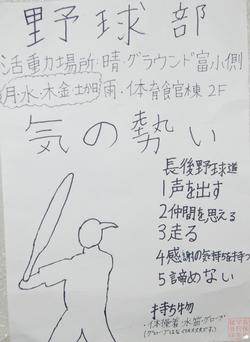 野球部
活動場所・晴 グラウンド富小側
月・水・木金土が日 雨・体育館棟2F
気の勢い
長後野球道
1声を出す
2仲間を思える
3走る
4感謝の気持を持つ
5諦めない
持ち物
・体操着・水筒・グローブ